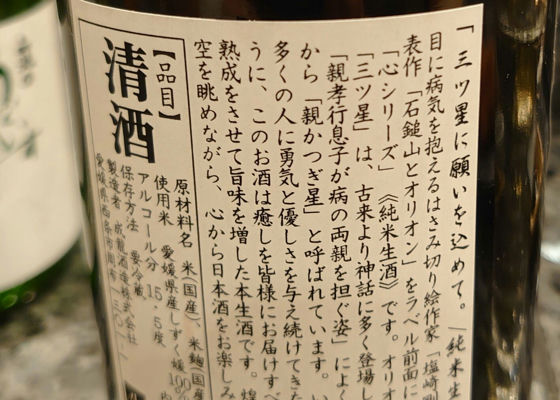 「三ツ星に願いを込めて。/純米生
目に病気を抱えるはさみ切り絵作家「塩崎剛
表作「石鎚山とオリオン」をラベル前面に
「心シリーズ」《純米生酒》です。オリオ
「三ツ星」は、古来より神話に多く登場し
「親孝行息子が病の両親を担ぐ姿」によく
から「親かつぎ星」と呼ばれています。い
多くの人に勇気と優しさを与え続けてきた
うに、このお酒は癒しを皆様にお届けすべ
熟成をさせて旨味を増した本生酒です。煌
空を眺めながら、心から日本酒をお楽しみ
【品目】
清酒
原材料名 米(国産)、米麹(国産
使用米 愛媛県産しずく媛100%
アルコール分 15.5度
保存方法 要冷蔵
製造者 成龍酒造株式会社
愛媛県西条市周布1301-1